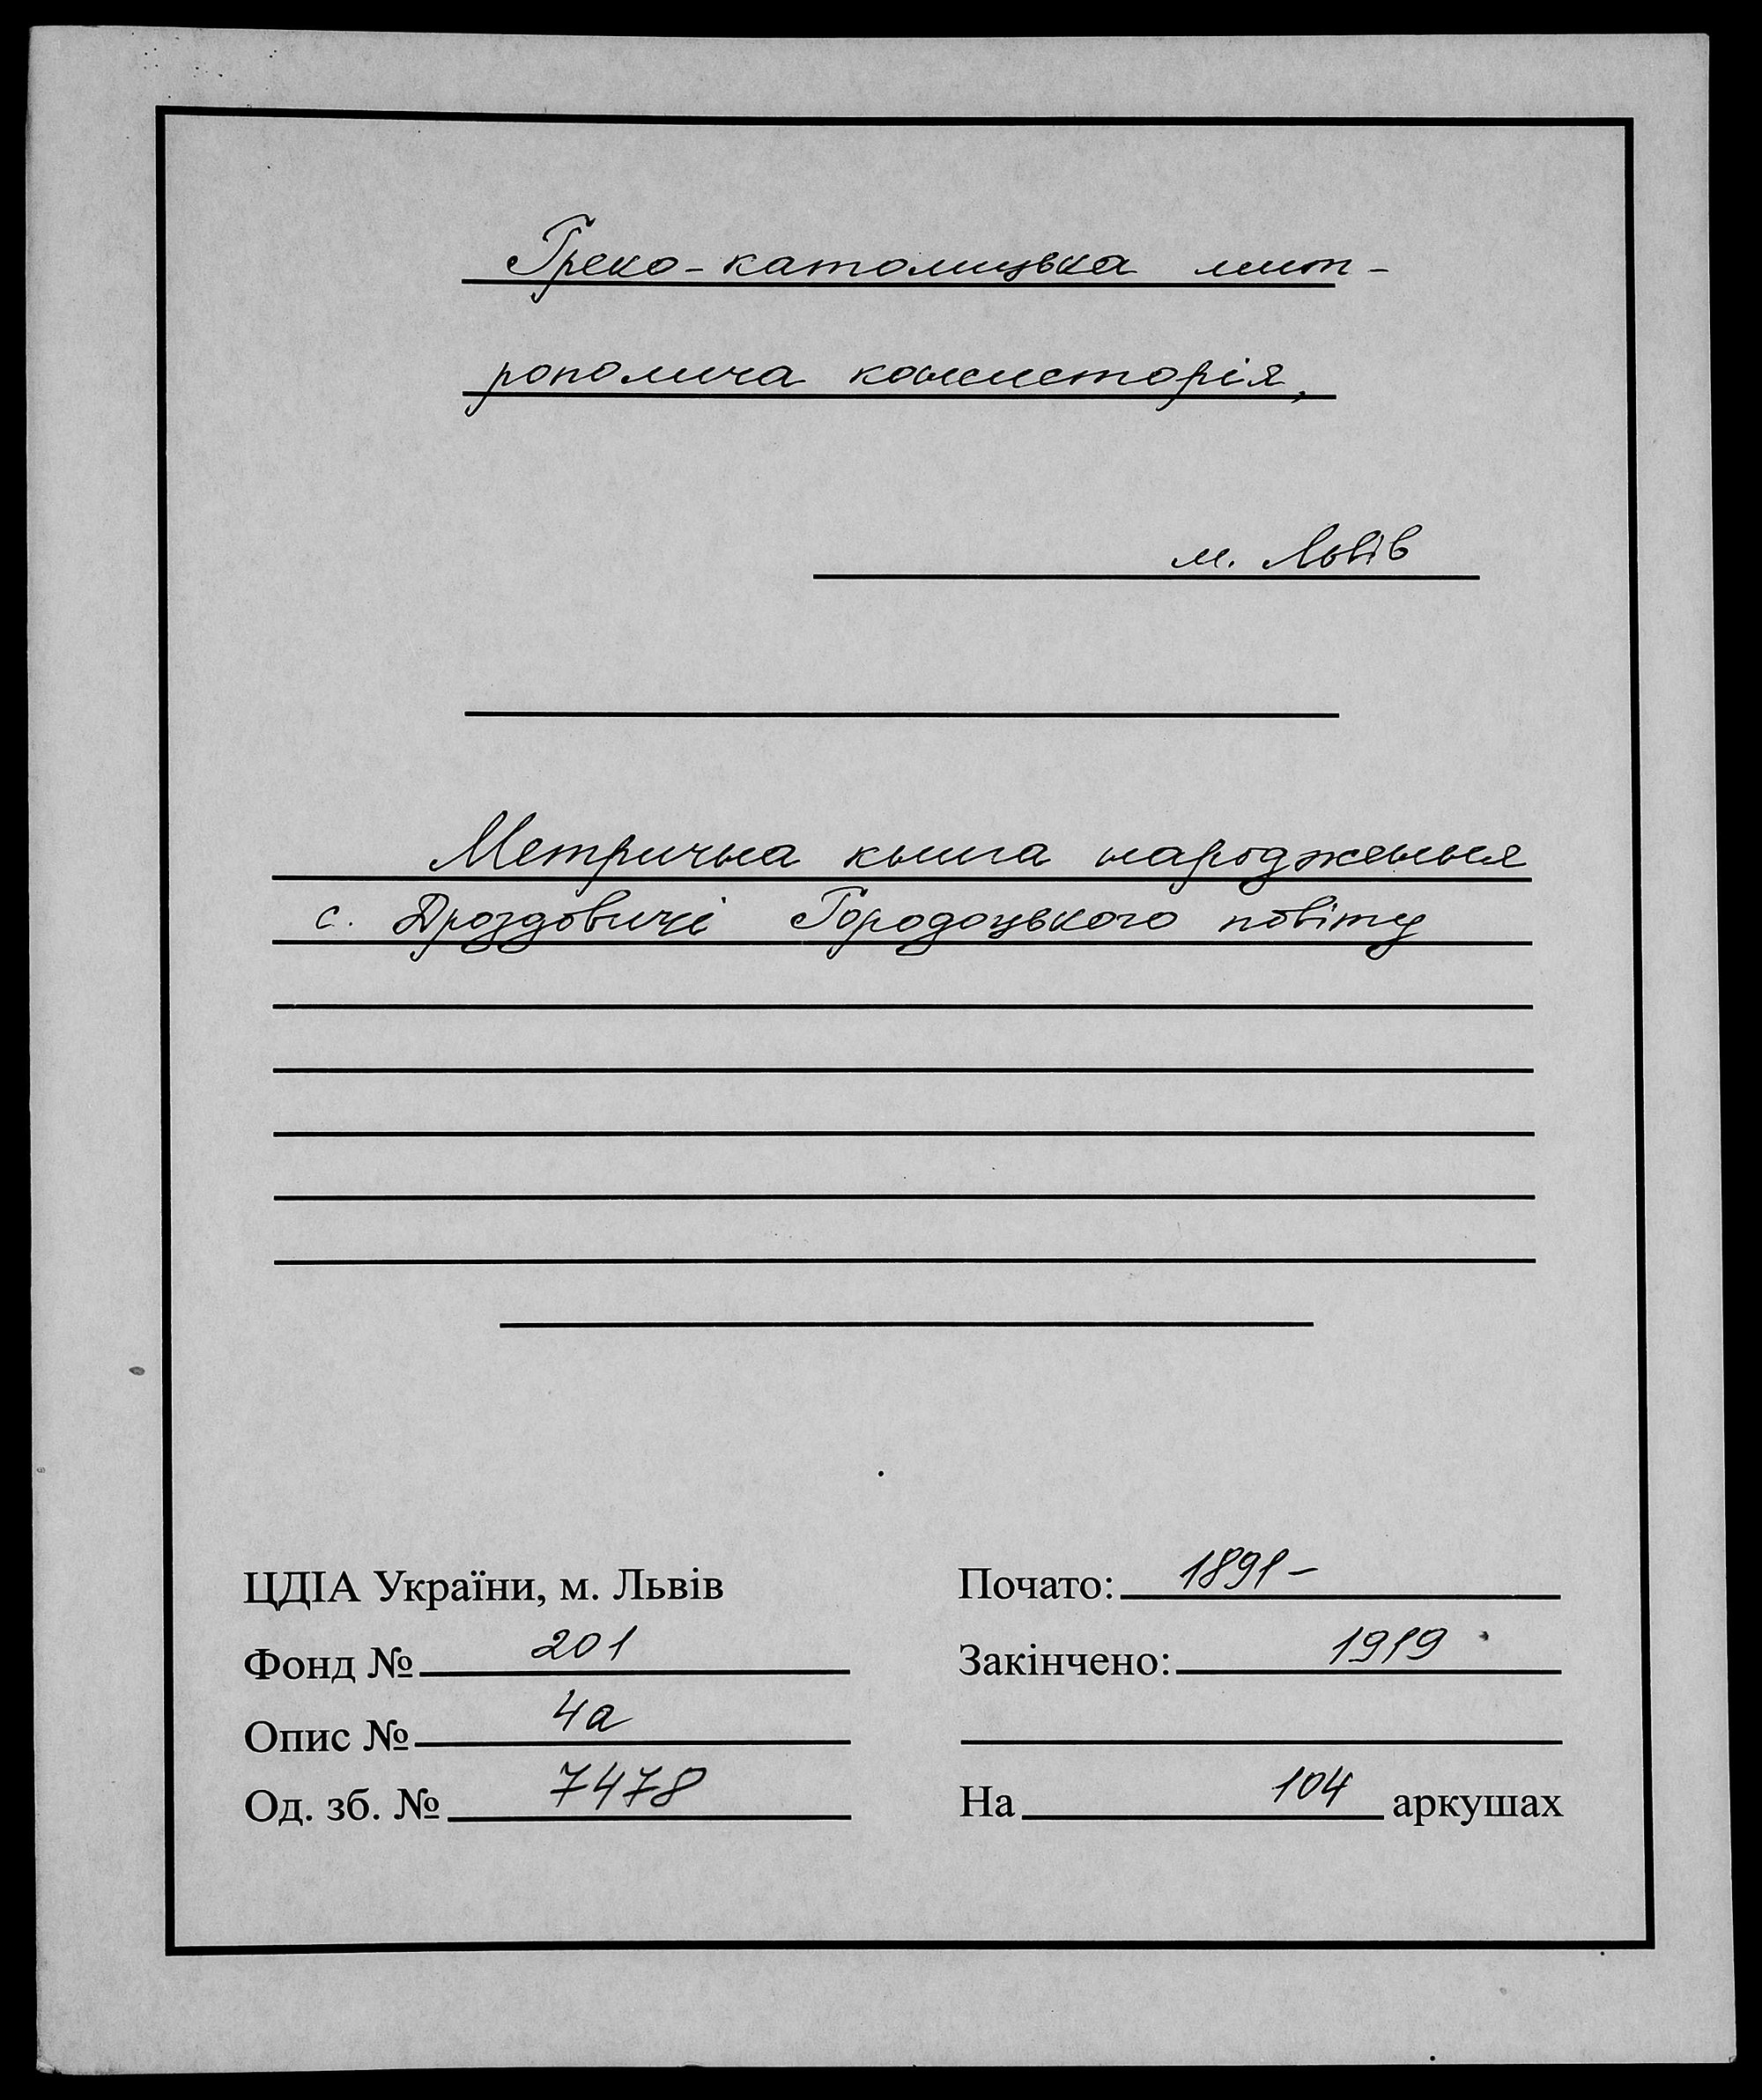 Греко-католицька мит-
рополича консисторія,
м. Львів
Метрична книга народження
с. Дроздовичі Городоцького повіту
ЦДІА України, м. Львів
Фонд № 201
Опис № 4а
Од. зб. № 7478
Почато: 1891-
Закінчено: 1919
На 104 аркушах